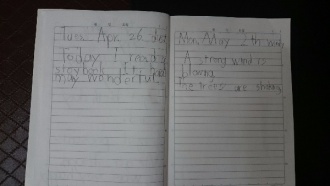 Tue. Apr. 26
Today, I read
storybook. It is
wonderful
Mon. May 2th windy
A strong wind is
blowing.
The trees are shaking